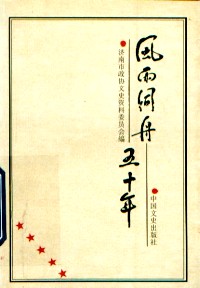 风雨同舟
五十年
济南市政协文史资料委员会编
中国文史出版社